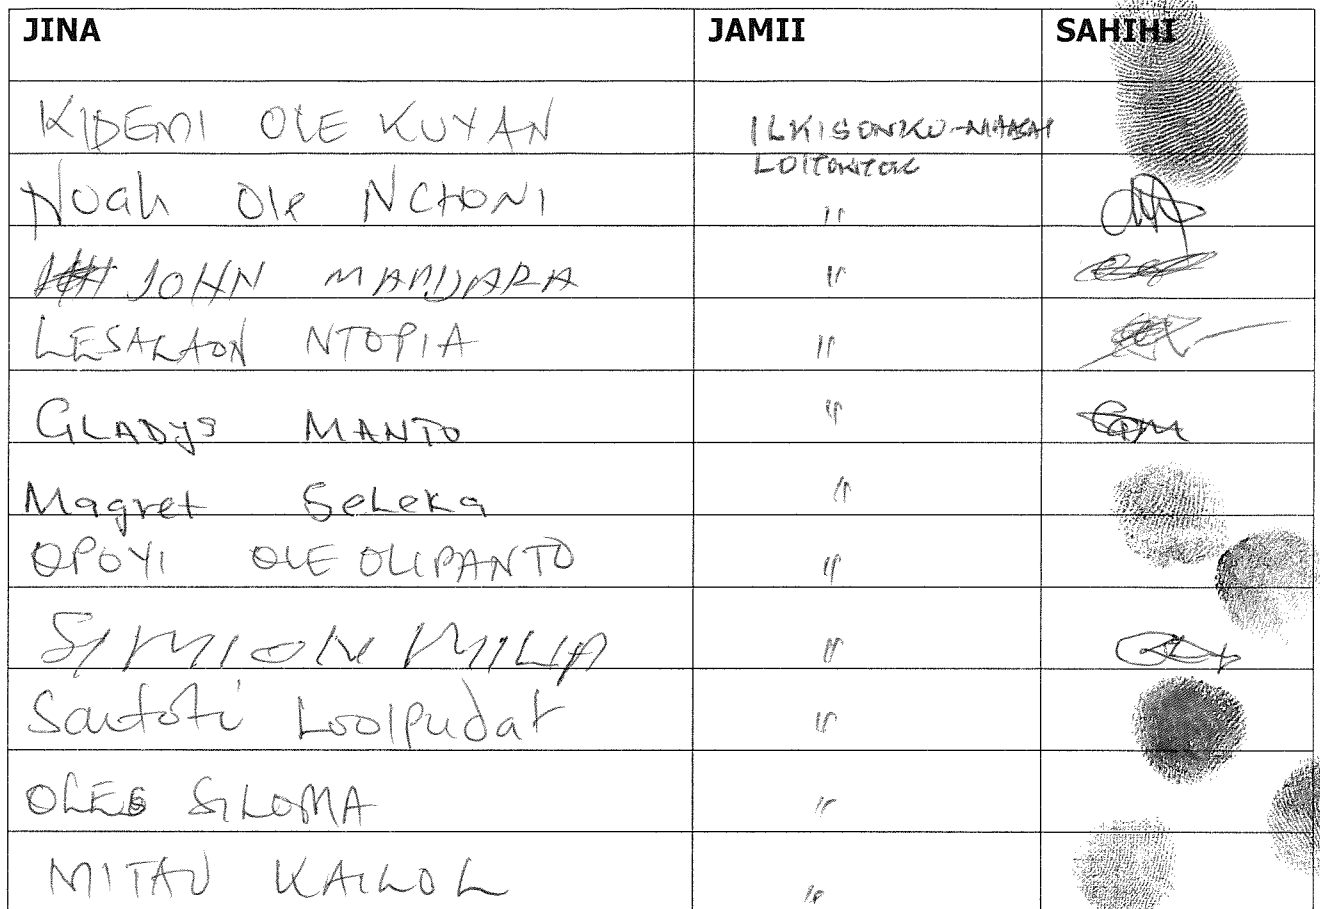 JINA JAMII SAHIHI
KIDEMI OLE KUYAN ILKISONKO-MAASAI
LOITOKTOK
Noah Ole NCHONI "
JOHN MAPIJARA "
LESALAON NTOPIA "
GLADYS MANTO "
Magret Seleka "
OPOYI OLE OLIPANTO "
SIMION MILIA "
Santoti Loolpudat "
OLES SILOMA "
MITAU KAILOL "